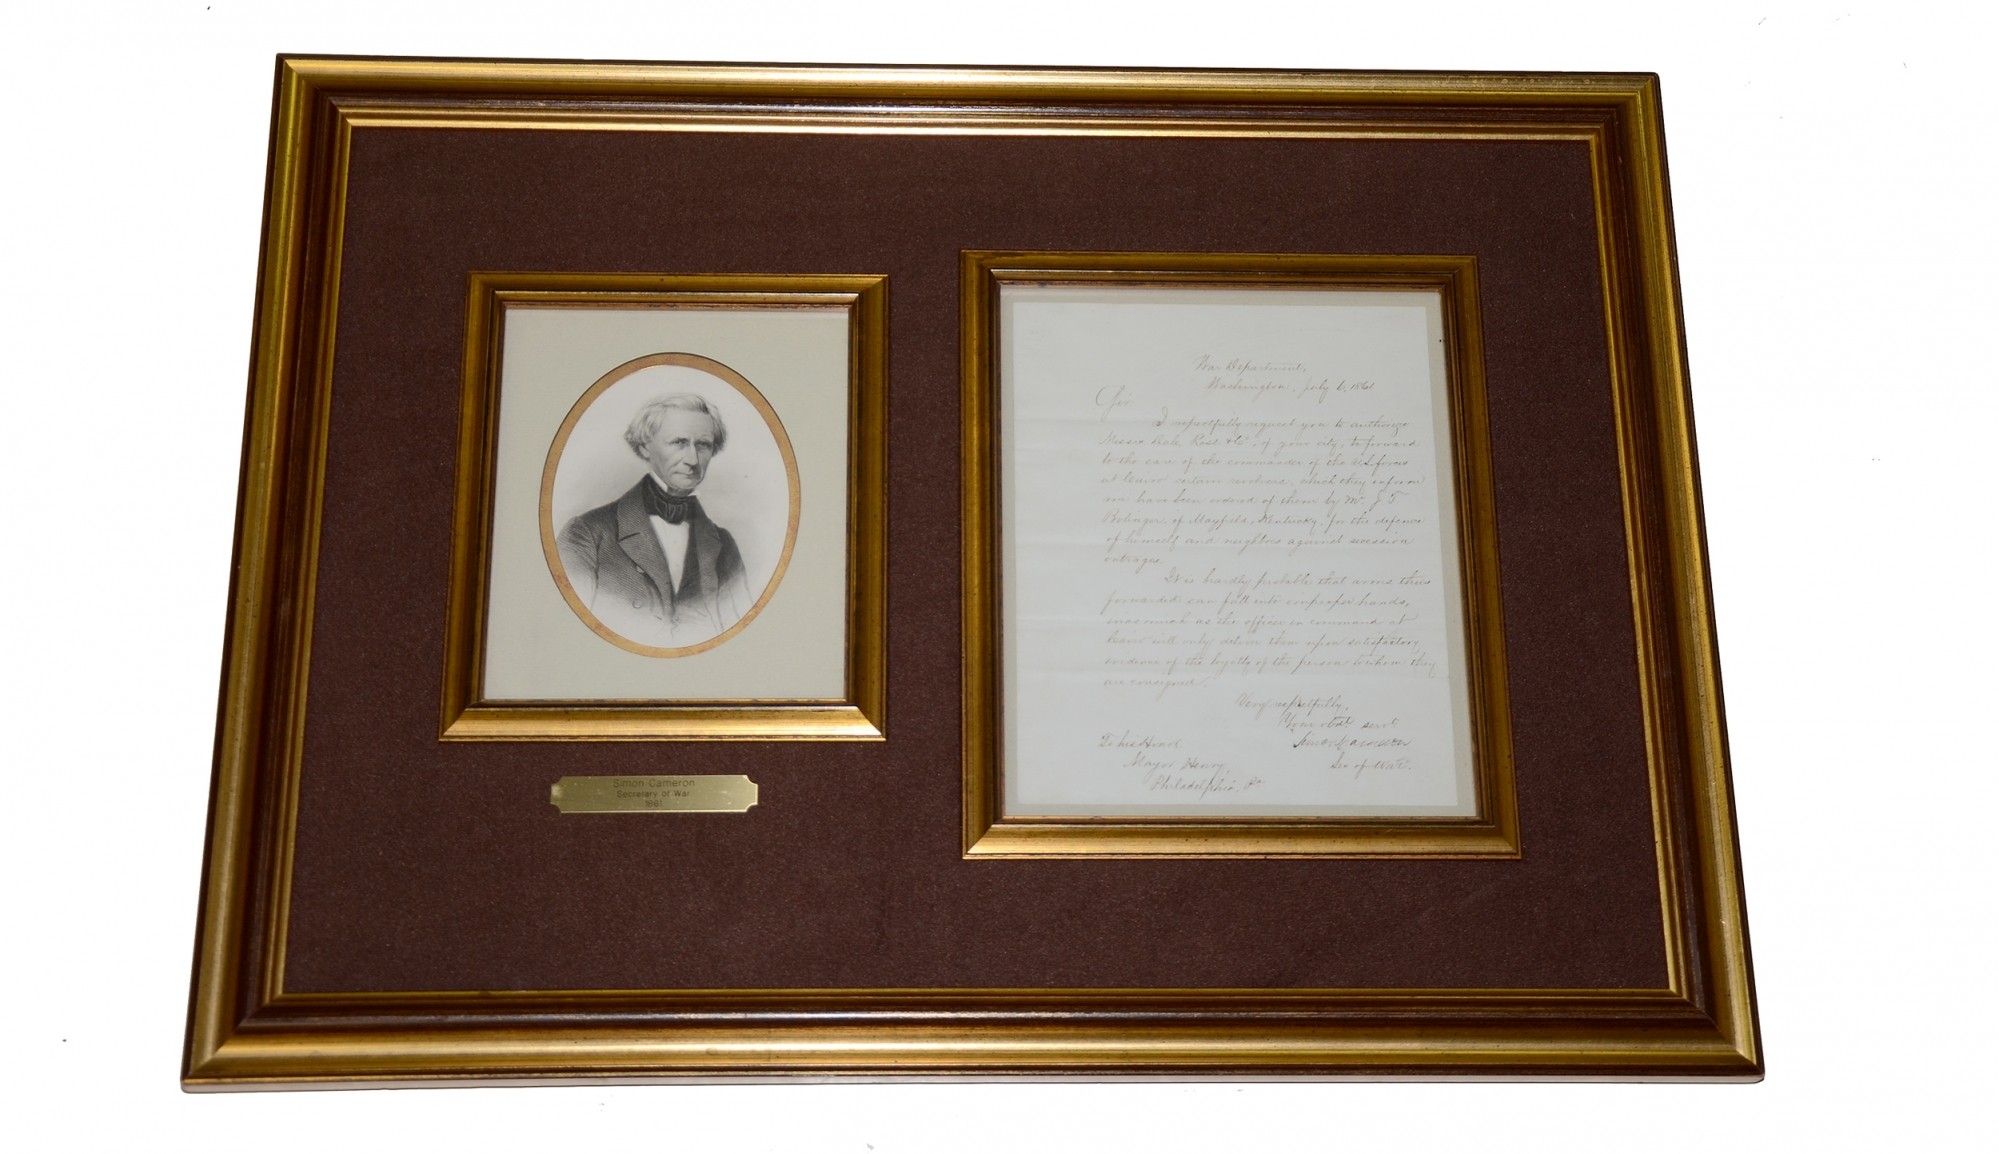 Simon Cameron
Secretary of War
1861
War Department,
Washington, July 6, 1861
Sir
I respectfully request you to authorize
Messrs Dale Ross & Co. of your city, to forward
to the care of the commander of the U.S. forces
at Cairo certain revolvers, which they inform
me have been ordered of them by Mr. J. T.
Bolinger, of Mayfield, Kentucky, for the defence
of himself and neighbors against secession
outrages.
It is hardly probable that arms thus
forwarded can fall into improper hands,
inasmuch as the officer in command at
Cairo will only deliver them upon satisfactory
evidence of the loyalty of the person to whom they
are consigned.
Very respectfully,
Your obdt servt
Simon Cameron
Sec of War.
To his Honor
Mayor Henry,
Philadelphia, Pa